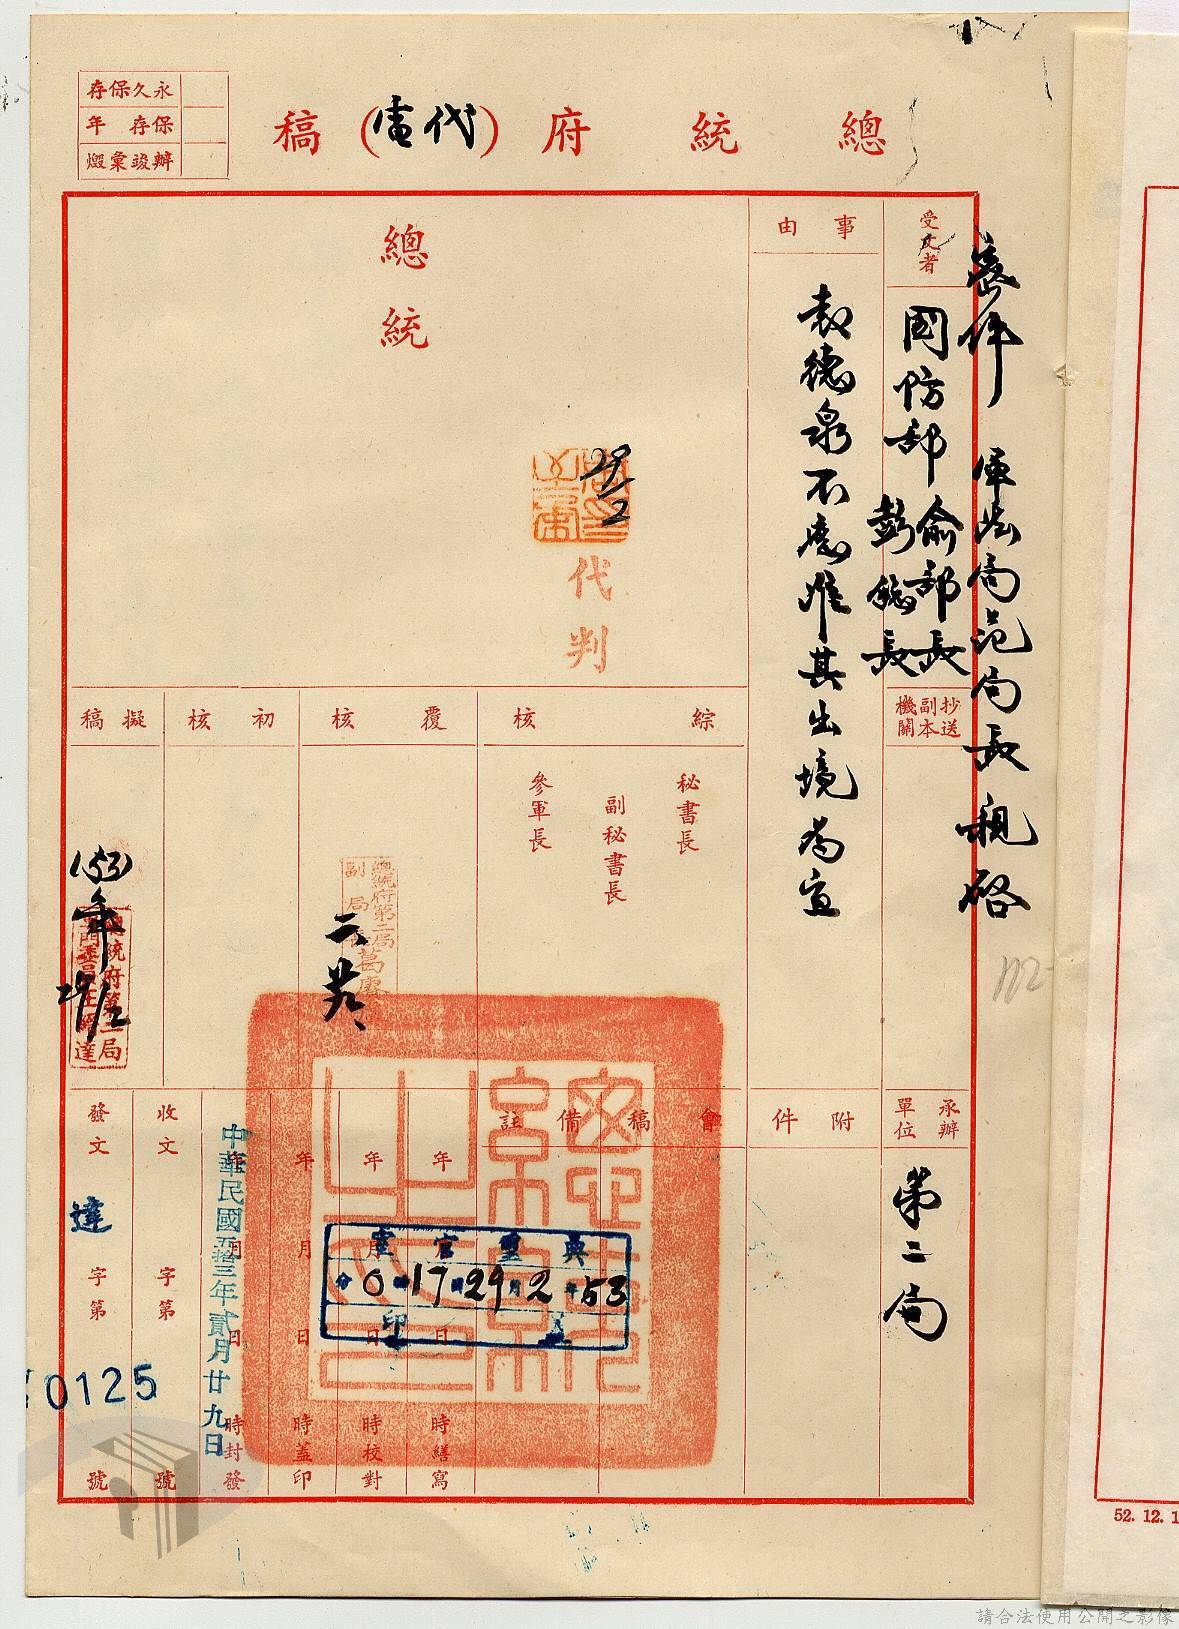 永久保存
保存　年
辦竣彙燬
總統府(代電)稿
受文者
密件　軍法局范局長親啓
國防部俞部長
彭總長
抄送副本機關
事由
袁德泉不應准其出境為宜
總統
29/2
代判
綜核
秘書長
副秘書長
參軍長
覆核
總統府第二局
副局
二、廿九、
初核
擬稿
(53)年
29/2
總統府第二局
承辦單位
第二局
附件
會稿
備註
年　月　日　時繕寫
年　月　日　時校對
年　月　日　時蓋印
年　月　日　時封發
典璽官室
53年2月29日17時0分
印
中華民國五拾三年貳月廿九日
收文　字第　號
發文　達　字第　號
0125
112
52. 12. 1
請合法使用公開之影像